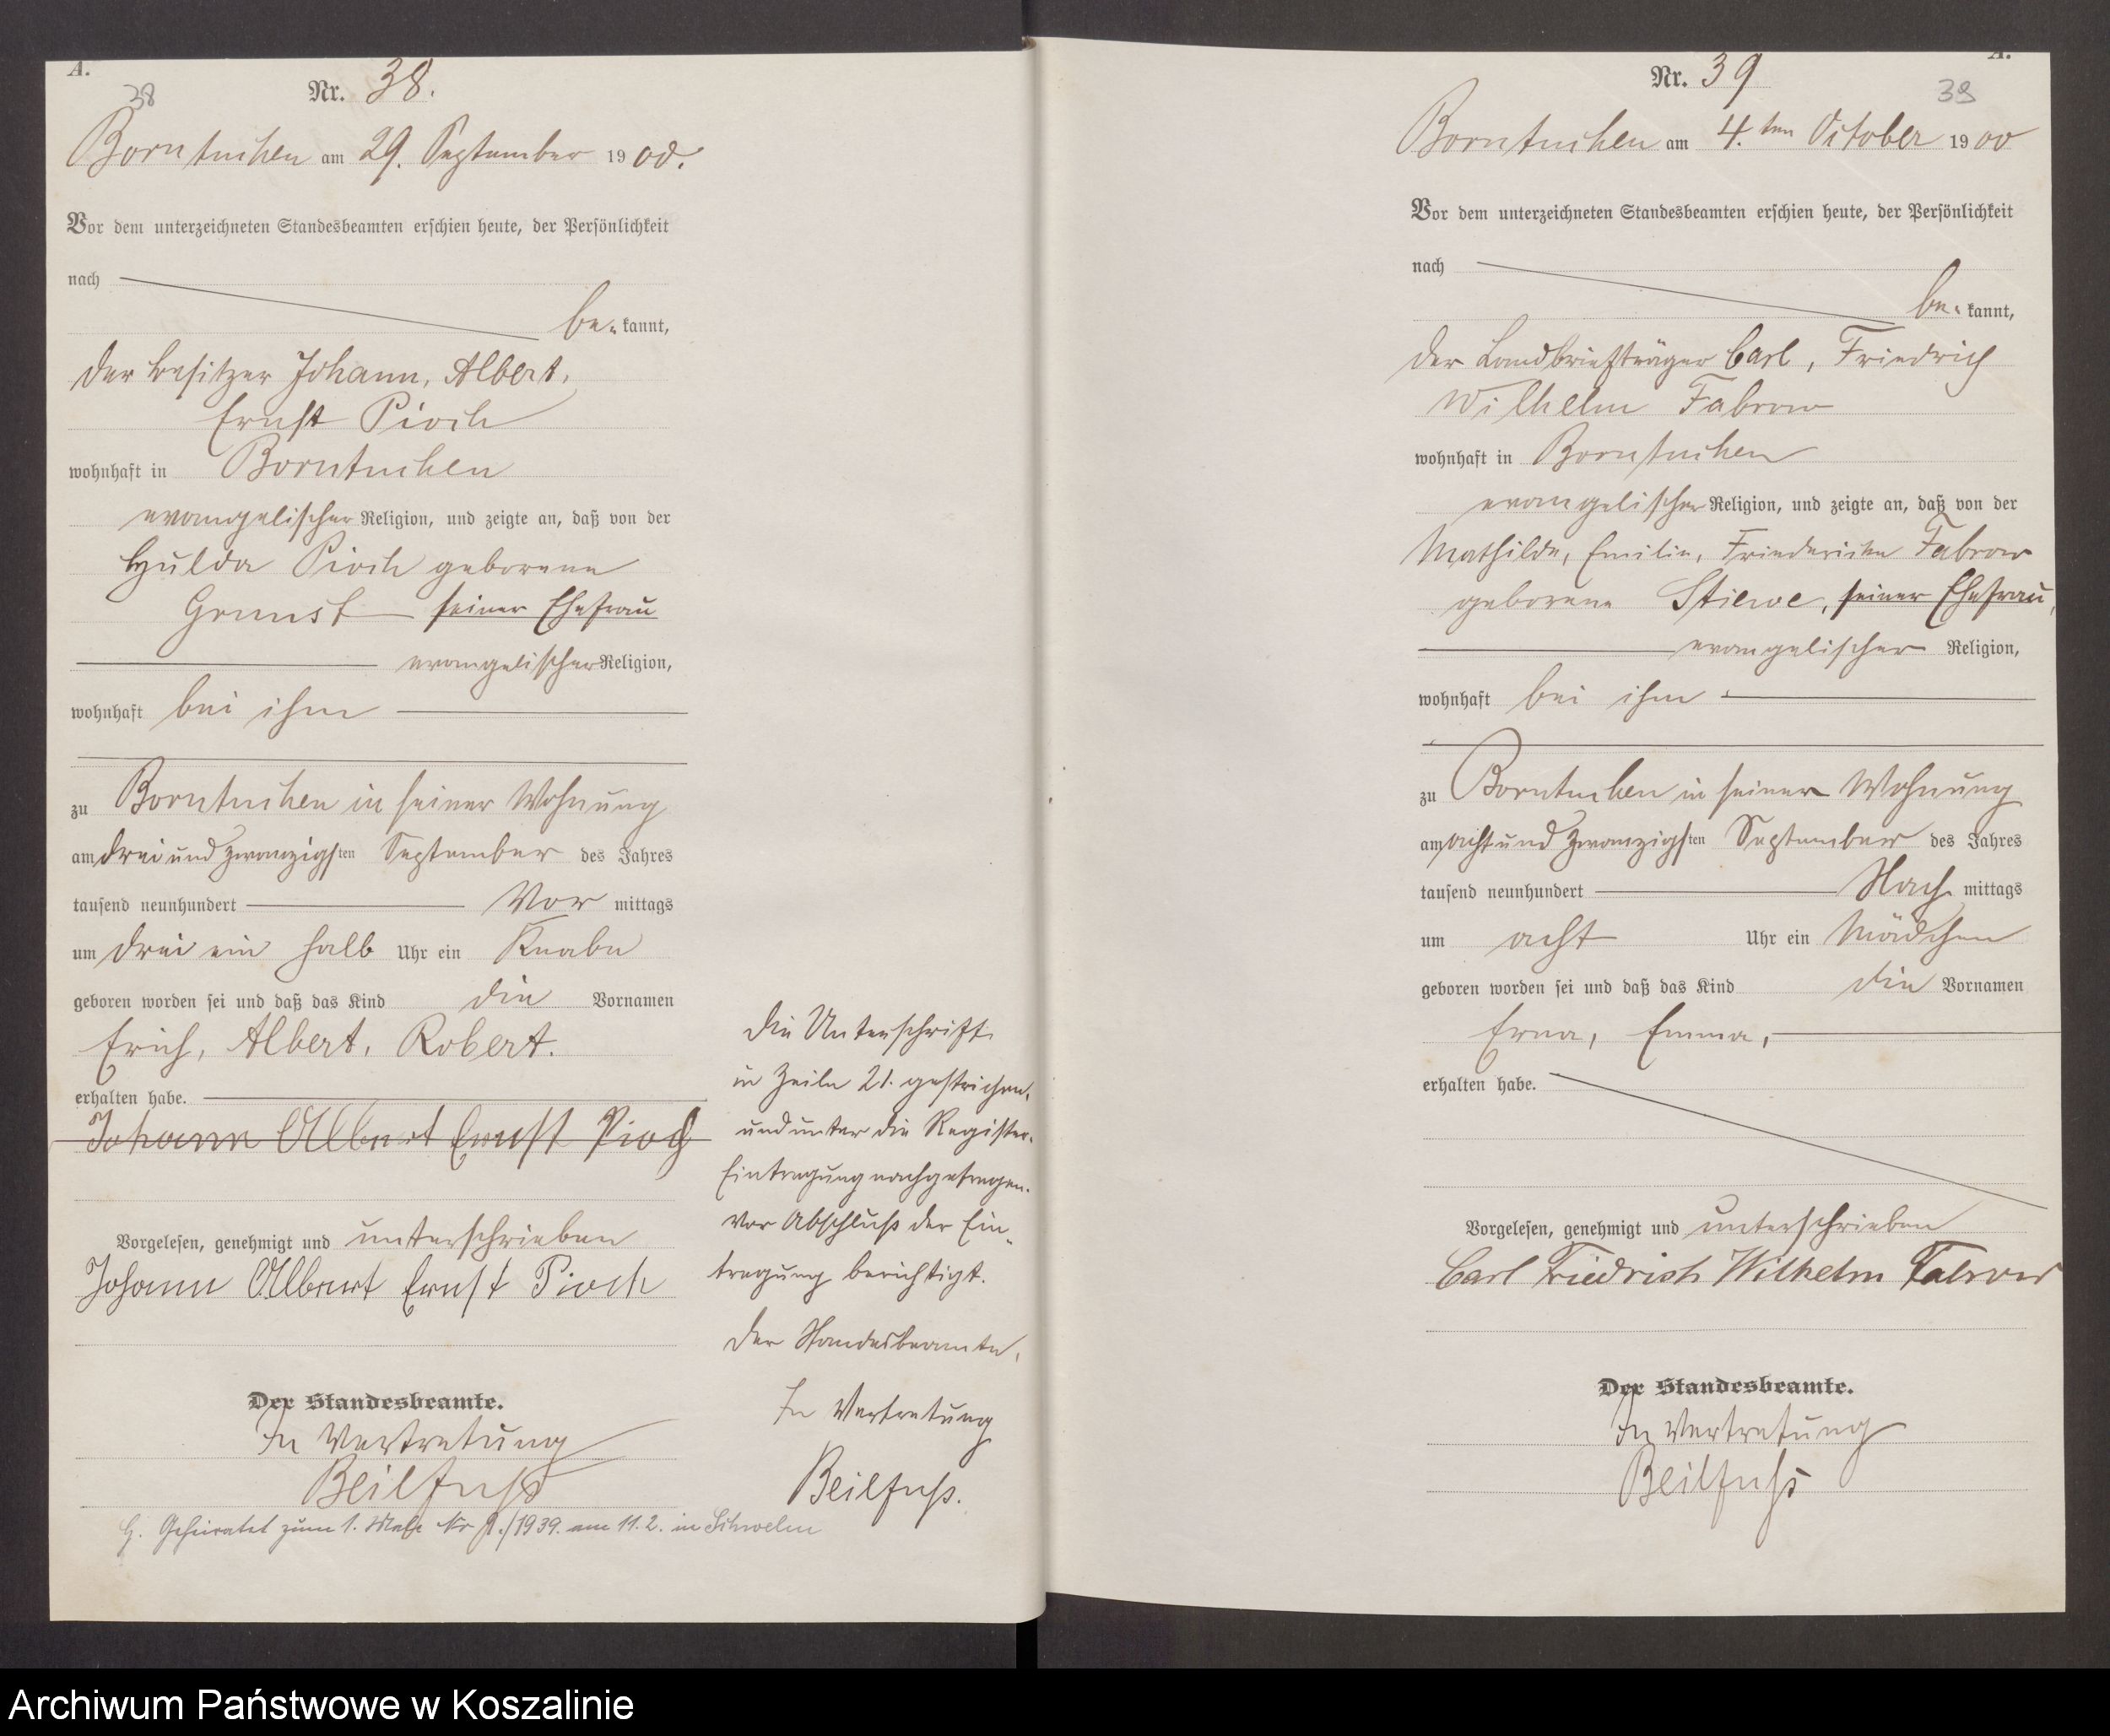 A.
38
Nr. 38.
Borntuchen am 29. September 1900.
Vor dem unterzeichneten Standesbeamten erschien heute, der Persönlichkeit
nach
be- kannt,
der Besitzer Johann, Albert,
Ernst Pioch
wohnhaft in Borntuchen
evangelischer Religion, und zeigte an, daß von der
Hulda Pioch geborene
Grunst seiner Ehefrau
evangelischer Religion,
wohnhaft bei ihm
zu Borntuchen in seiner Wohnung
am drei und zwanzigsten September des Jahres
tausend neunhundert Vor mittags
um drei ein halb Uhr ein Knabe
geboren worden sei und daß das Kind die Vornamen
Erich, Albert, Robert.
erhalten habe.
Johann Albert Ernst Pioch
Vorgelesen, genehmigt und unterschrieben
Johann Albert Ernst Pioch
Der Standesbeamte.
In Vertretung
Beilfuss
G. Geheiratet zum 1. Male Nr 9./1939. am 11.2. in Schwelm
Die Unterschrift
in Zeile 21. gestrichen.
und unter die Register-
Eintragung nachgetragen.
Vor Abschluß der Ein-
tragung berichtigt.
Der Standesbeamte.
In Vertretung
Beilfuss.
A.
Nr. 39
39
Borntuchen am 4.ten October 1900
Vor dem unterzeichneten Standesbeamten erschien heute, der Persönlichkeit
nach
be- kannt,
der Landbriefträger Carl, Friedrich
Wilhelm Fabrow
wohnhaft in Borntuchen
evangelischer Religion, und zeigte an, daß von der
Mathilde, Emilie, Friedericke Fabrow
geborene Stiewe, seiner Ehefrau,
evangelischer Religion,
wohnhaft bei ihm
zu Borntuchen in seiner Wohnung
am acht und zwanzigsten September des Jahres
tausend neunhundert Nach mittags
um acht Uhr ein Mädchen
geboren worden sei und daß das Kind die Vornamen
Erna, Emma,
erhalten habe.
Vorgelesen, genehmigt und unterschrieben
Carl Friedrich Wilhelm Fabrow
Der Standesbeamte.
In Vertretung
Beilfuss
Archiwum Państwowe w Koszalinie